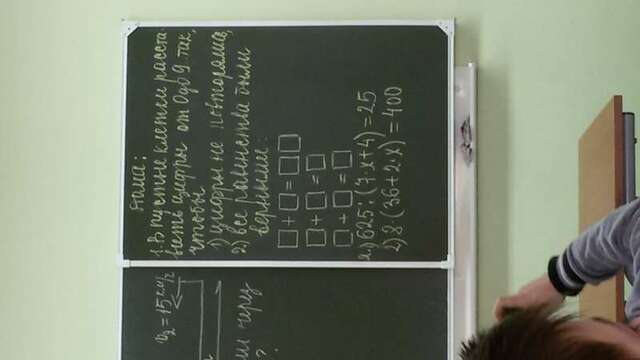 Дома:
1. В пустые клетки расста-
вить цифры от 0 до 9 так,
чтобы
1) цифры не повторялись,
2) все равенства были
верными:
□ + □ = □ □
□ + □ = □
□ + □ = □
а) 625 : (7·x+4) = 25
2) 8·(36+2·x) = 400
v₂ = 15 км/ч
через
?